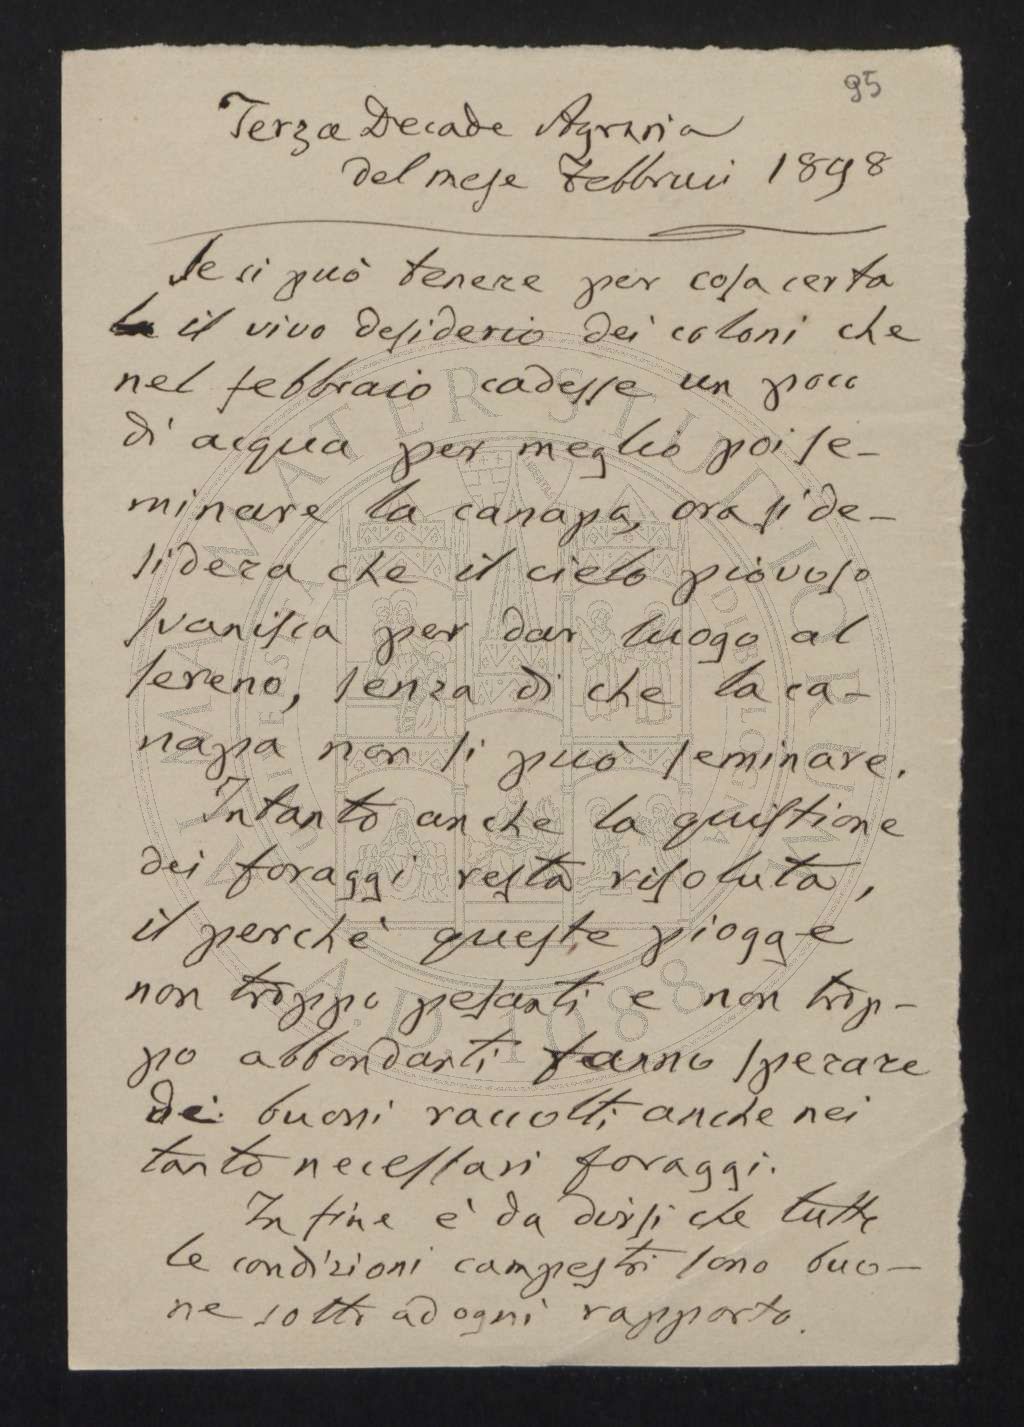 95
Terza Decade Agraria
del mese Febbraio 1898
Se si può tenere per cosa certa
il vivo desiderio dei coloni che
nel febbraio cadesse un poco
di acqua per meglio poi se-
minare la canapa, ora si de-
sidera che il cielo piovoso
svanisca per dar luogo al
sereno, senza di che la ca-
napa non si può seminare.
Intanto anche la quistione
dei foraggi resta risoluta,
il perchè queste piogge
non troppo pesanti e non trop-
po abbondanti fanno sperare
dei buoni raccolti anche nei
tanto necessari foraggi.
In fine è da dirsi che tutte
le condizioni campestri sono buo-
ne sotto ad ogni rapporto.
ALMA MATER STUDIORUM
A.D. 1088